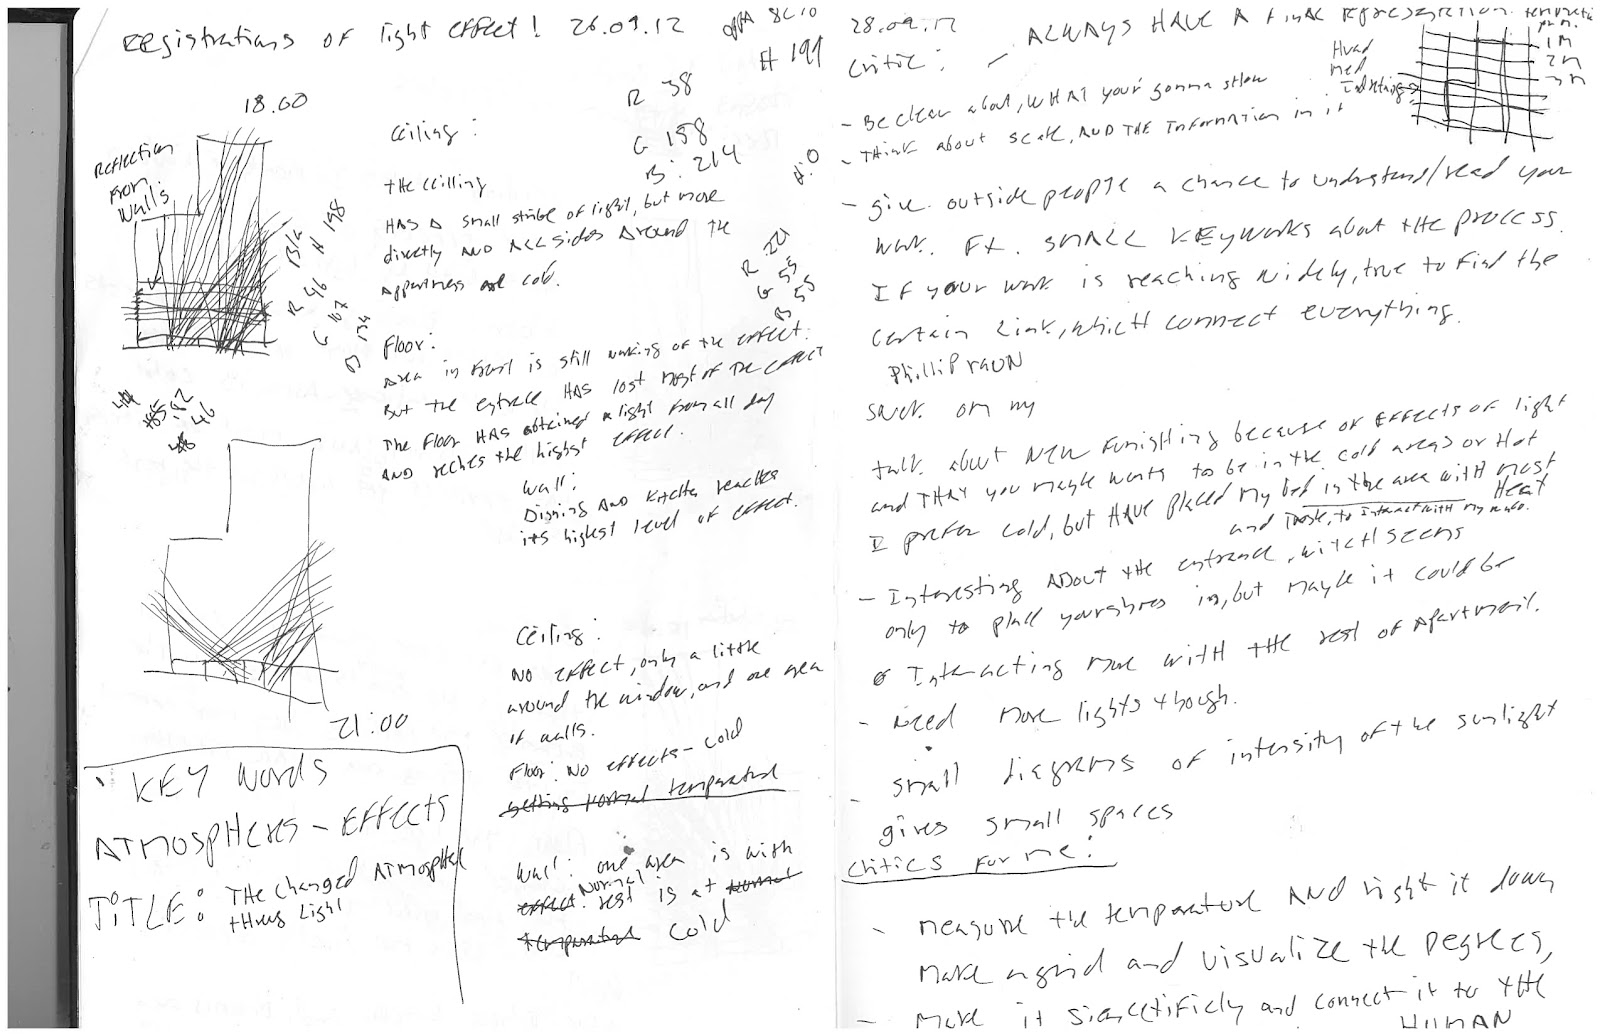 Registrations of light effect! 26.09.12
H 199
18.00
Reflection
from
walls
R 38
G 198
B: 214
H:0
R 221
G 55
B 55
H 198
R 46
G 107
B 134
Ceiling:
The ceilling
HAS A small stribe of light, but more
directly AND ALL sides Around the
appartness are cold.
Floor:
Area in front is still working of the effect.
But the entrace HAS lost most of the effect
The Floor HAS obtained a light from all day
AND reches the highest effect.
Wall:
Dinning AND Kitchen reaches
its highest level of effect.
21:00
Ceiling:
No effect, only a little
around the window, and one area
of walls.
Floor: No effects - cold
getting normal temperature
Wall: one area is with
effect. Normal rest is at normal
temperature cold
KEY words
ATMOSPHERES - EFFECTS
TITLE: THE changed ATMOSPHERE
threw light
28.09.12
ALWAYS HAVE A final representation.
Critic:
Hvad
med
indretning
1M
2M
3M
- Be clear about, WHAT your gonna show
- Think about scale, AND THE information in it
- give outside people a chance to understand/read your
work. Fx. SMALL KEYWORKS about the process.
If your work is reaching widely, true to find the
certain link, which connect everything.
talk about New furnishing because of effects of light
and THAT you maybe wants to be in the cold areas or Hot
I prefer cold, but HAVE placed my bed in the area with most
Heat
- Interesting About the entrance, witch seems
only to place yourshoes in, but maybe it could be
Interacting more with the rest of Apartment.
- Need more lights though.
- small diagrams of intensity of the sunlight
gives small spaces
Critics for me:
- measure the temperature AND right it down
make a grid and visualize the degrees,
- make it siencetificly and connect it to the
HUMAN